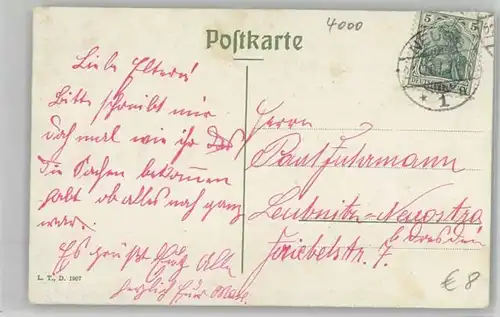 4000
5
Postkarte
Liebe Eltern!
Bitte schreibt mir
doch mal wie ihr das
die Sachen bekommen
habt ob alles noch ganz
war.
Es grüßt Euch Alle
herzlich Euer Max.
Herrn
Paul Fuhrmann
Leubnitz-Neuostra
b. Dresden
Friebelstr. 7.
L. T., D. 1907
1
€ 8